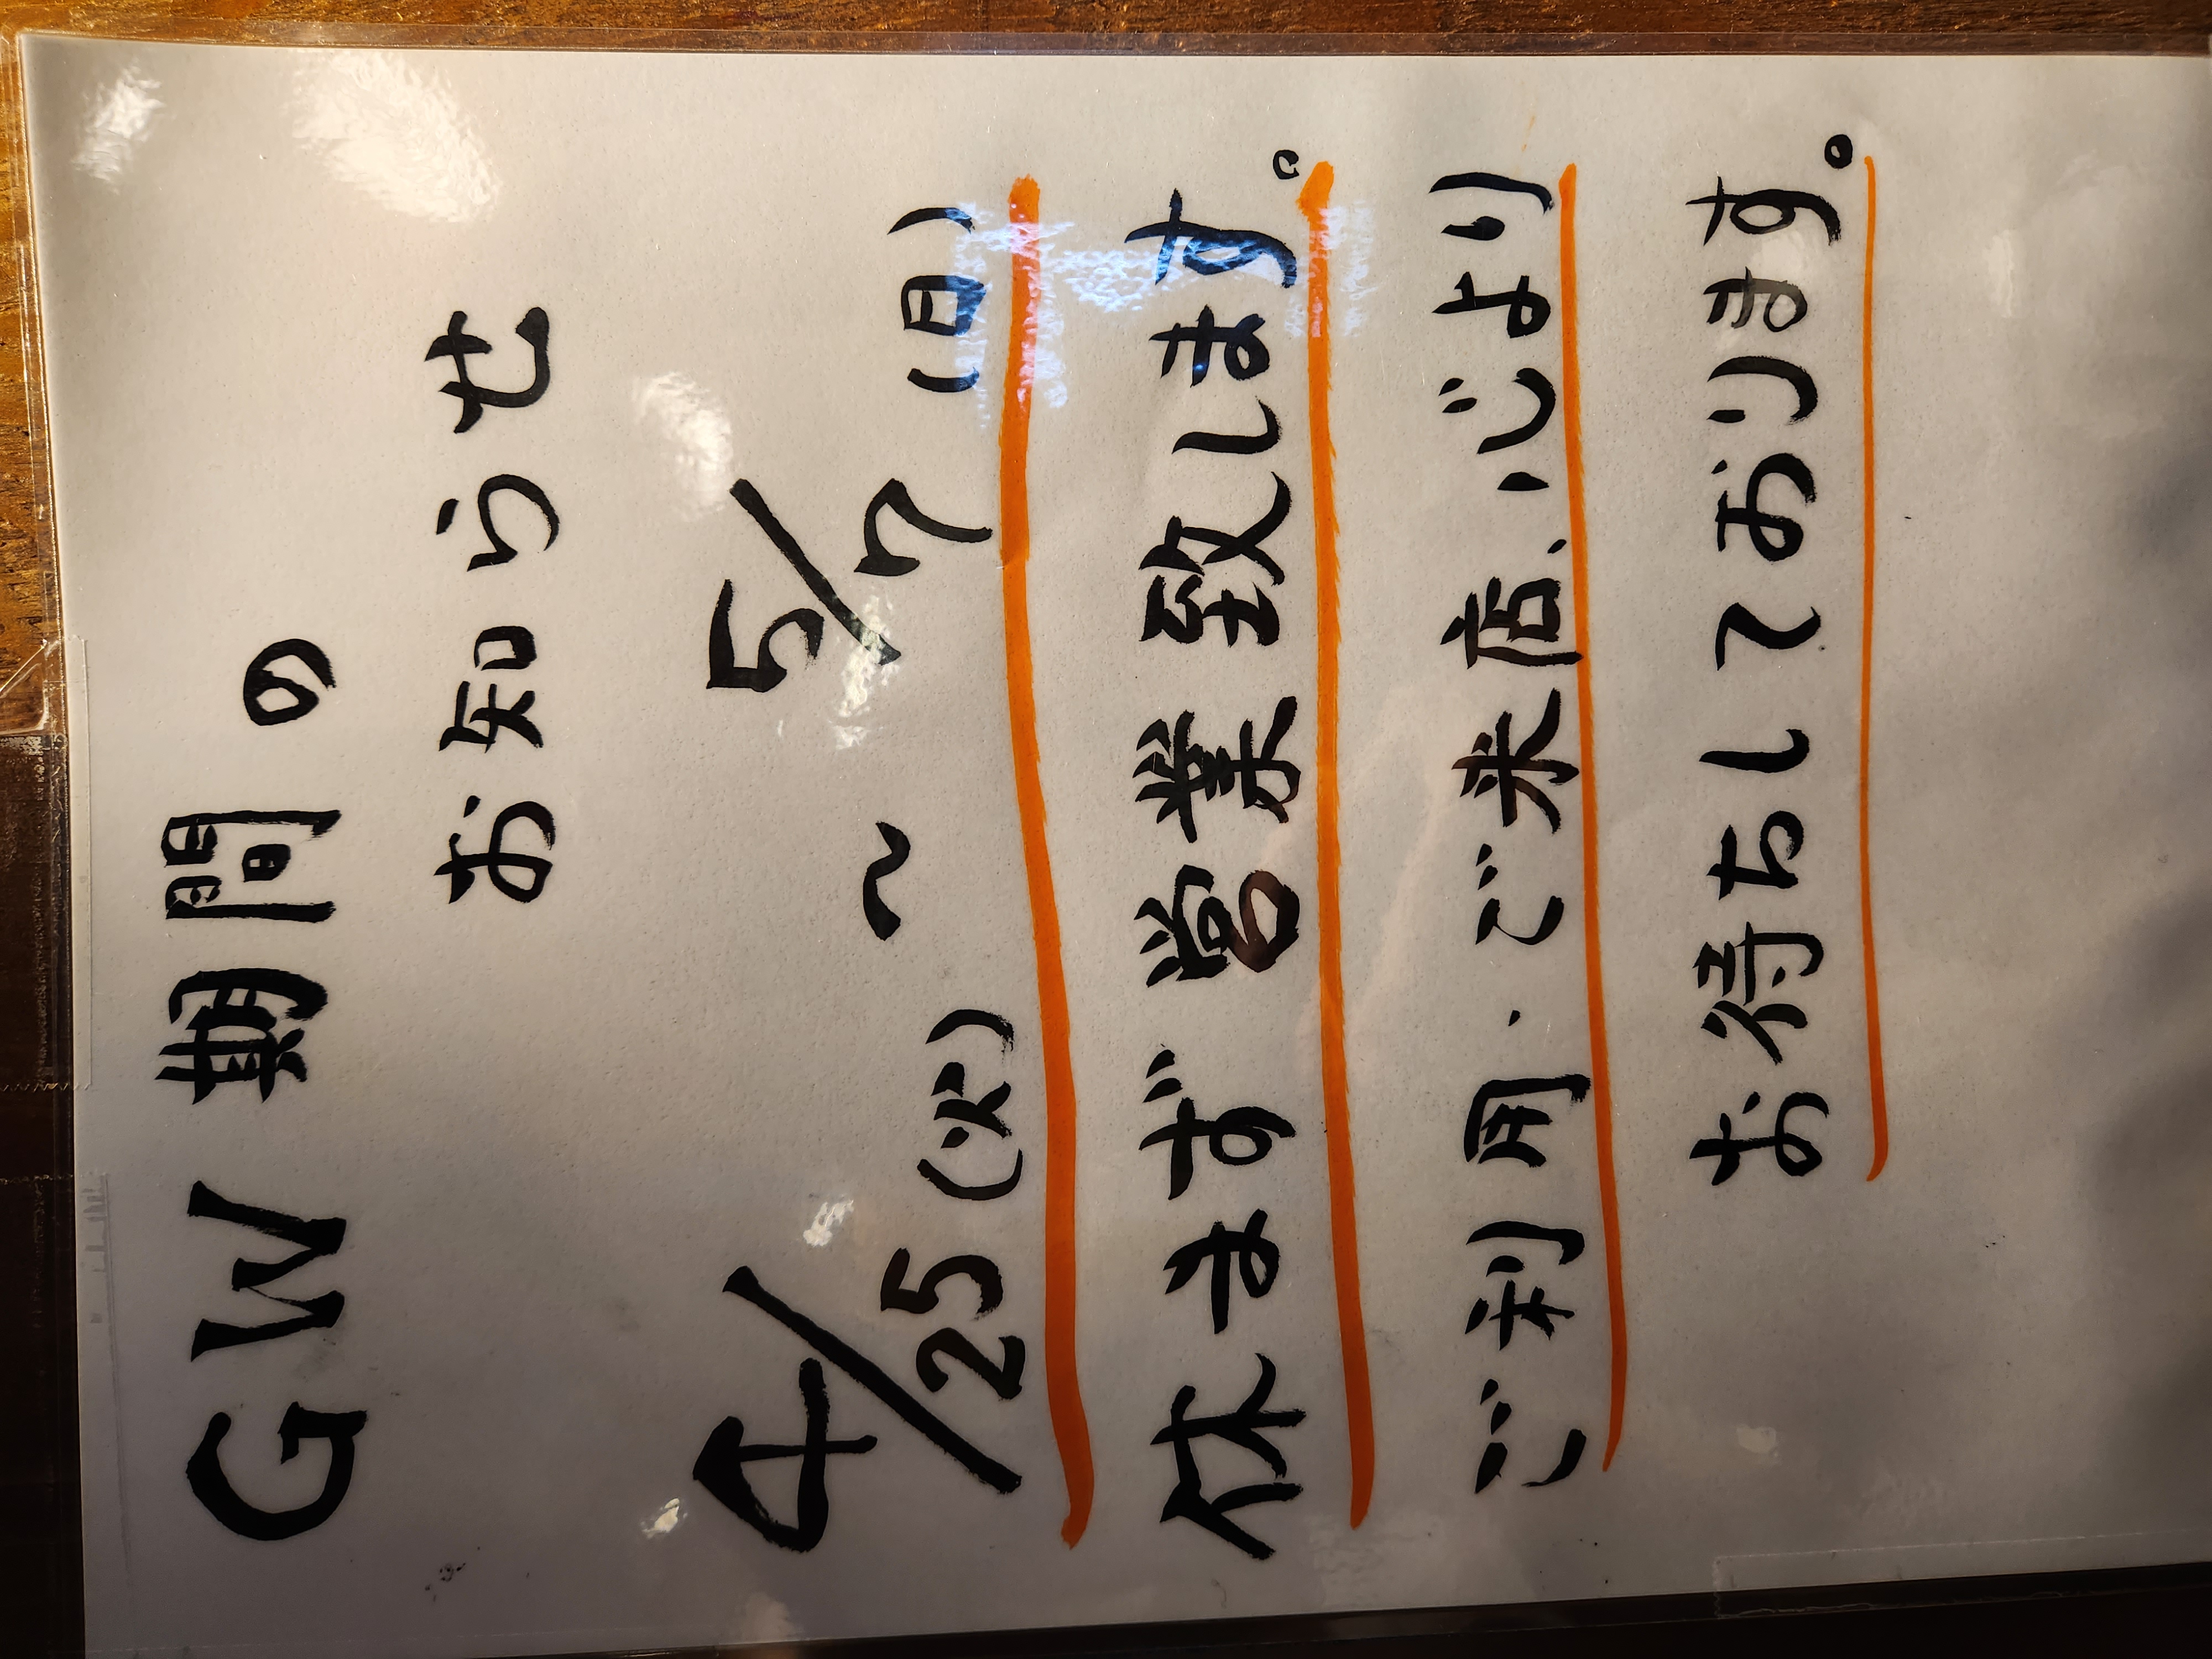 GW期間の
お知らせ
4/25(火)～5/7(日)
休まず営業致します。
ご利用・ご来店、心より
お待ちしております。